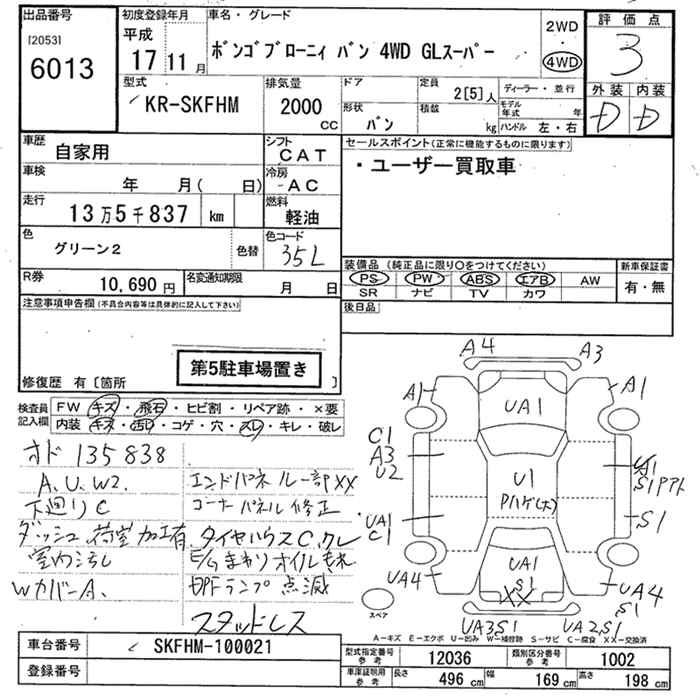 出品番号
[2053]
6013
初度登録年月
平成
17 11 月
車名・グレード
ボンゴブローニィ バン 4WD GLスーパー
2WD
4WD
評価点
3
外装 内装
D D
型式
KR-SKFHM
排気量
2000
CC
ドア
定員
2[5]人
形状
バン
積載
kg
ディーラー・並行
モデル年式 年
ハンドル 左・右
車歴
自家用
シフト
CAT
車検
年 月( 日)
冷房
AC
走行
13万5千837 km
燃料
軽油
色
グリーン2
色替
色コード
35L
R券
10,690円
名変通知期限
月 日
セールスポイント(正常に機能するものに限ります)
・ユーザー買取車
装備品 (純正品に限り○をつけてください)
PS PW ABS エアB AW
SR ナビ TV カワ
新車保証書
有・無
後日品
注意事項申告欄(不具合内容等は具体的に記入して下さい)
第5駐車場置き
修復歴 有〔箇所 〕
検査員記入欄
FW キズ・飛石・ヒビ割・リペア跡・×要
内装 キズ・汚れ・コゲ・穴・スレ・キレ・破レ
オド 135838
A.U.W2.
下廻りC
ダッシュ 荷室 加工有
室内汚れ
WカバーA.
エンドパネル一部XX
コーナーパネル 修正
タイヤハウスC,クレ
E/Gまわりオイルもれ
DPFランプ点滅
スタッドレス
A4 A3
A1 UA1 A1
C1
A3
U2
U1
Pハゲ(大)
A1
S1アト
UA1
C1
S1
UA4
UA1
S1
XX
UA4
S1
スペア
UA3S1 UA2,S1
A-キズ E-エクボ U-凹み W-補修跡 S-サビ C-腐食 XX-交換済
車台番号
SKFHM-100021
登録番号
型式指定番号
参考
12036
類別区分番号
参考
1002
車庫証明用
参考
長さ 496 cm 幅 169 cm 高さ 198 cm